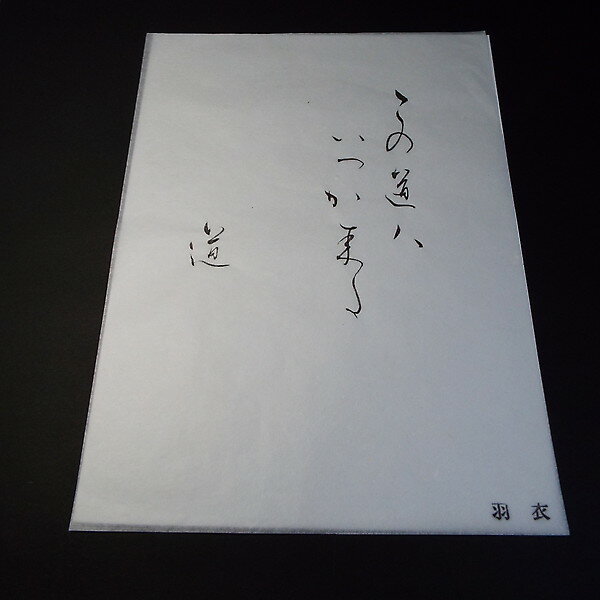 この道ハ
いつか来る
道
羽衣